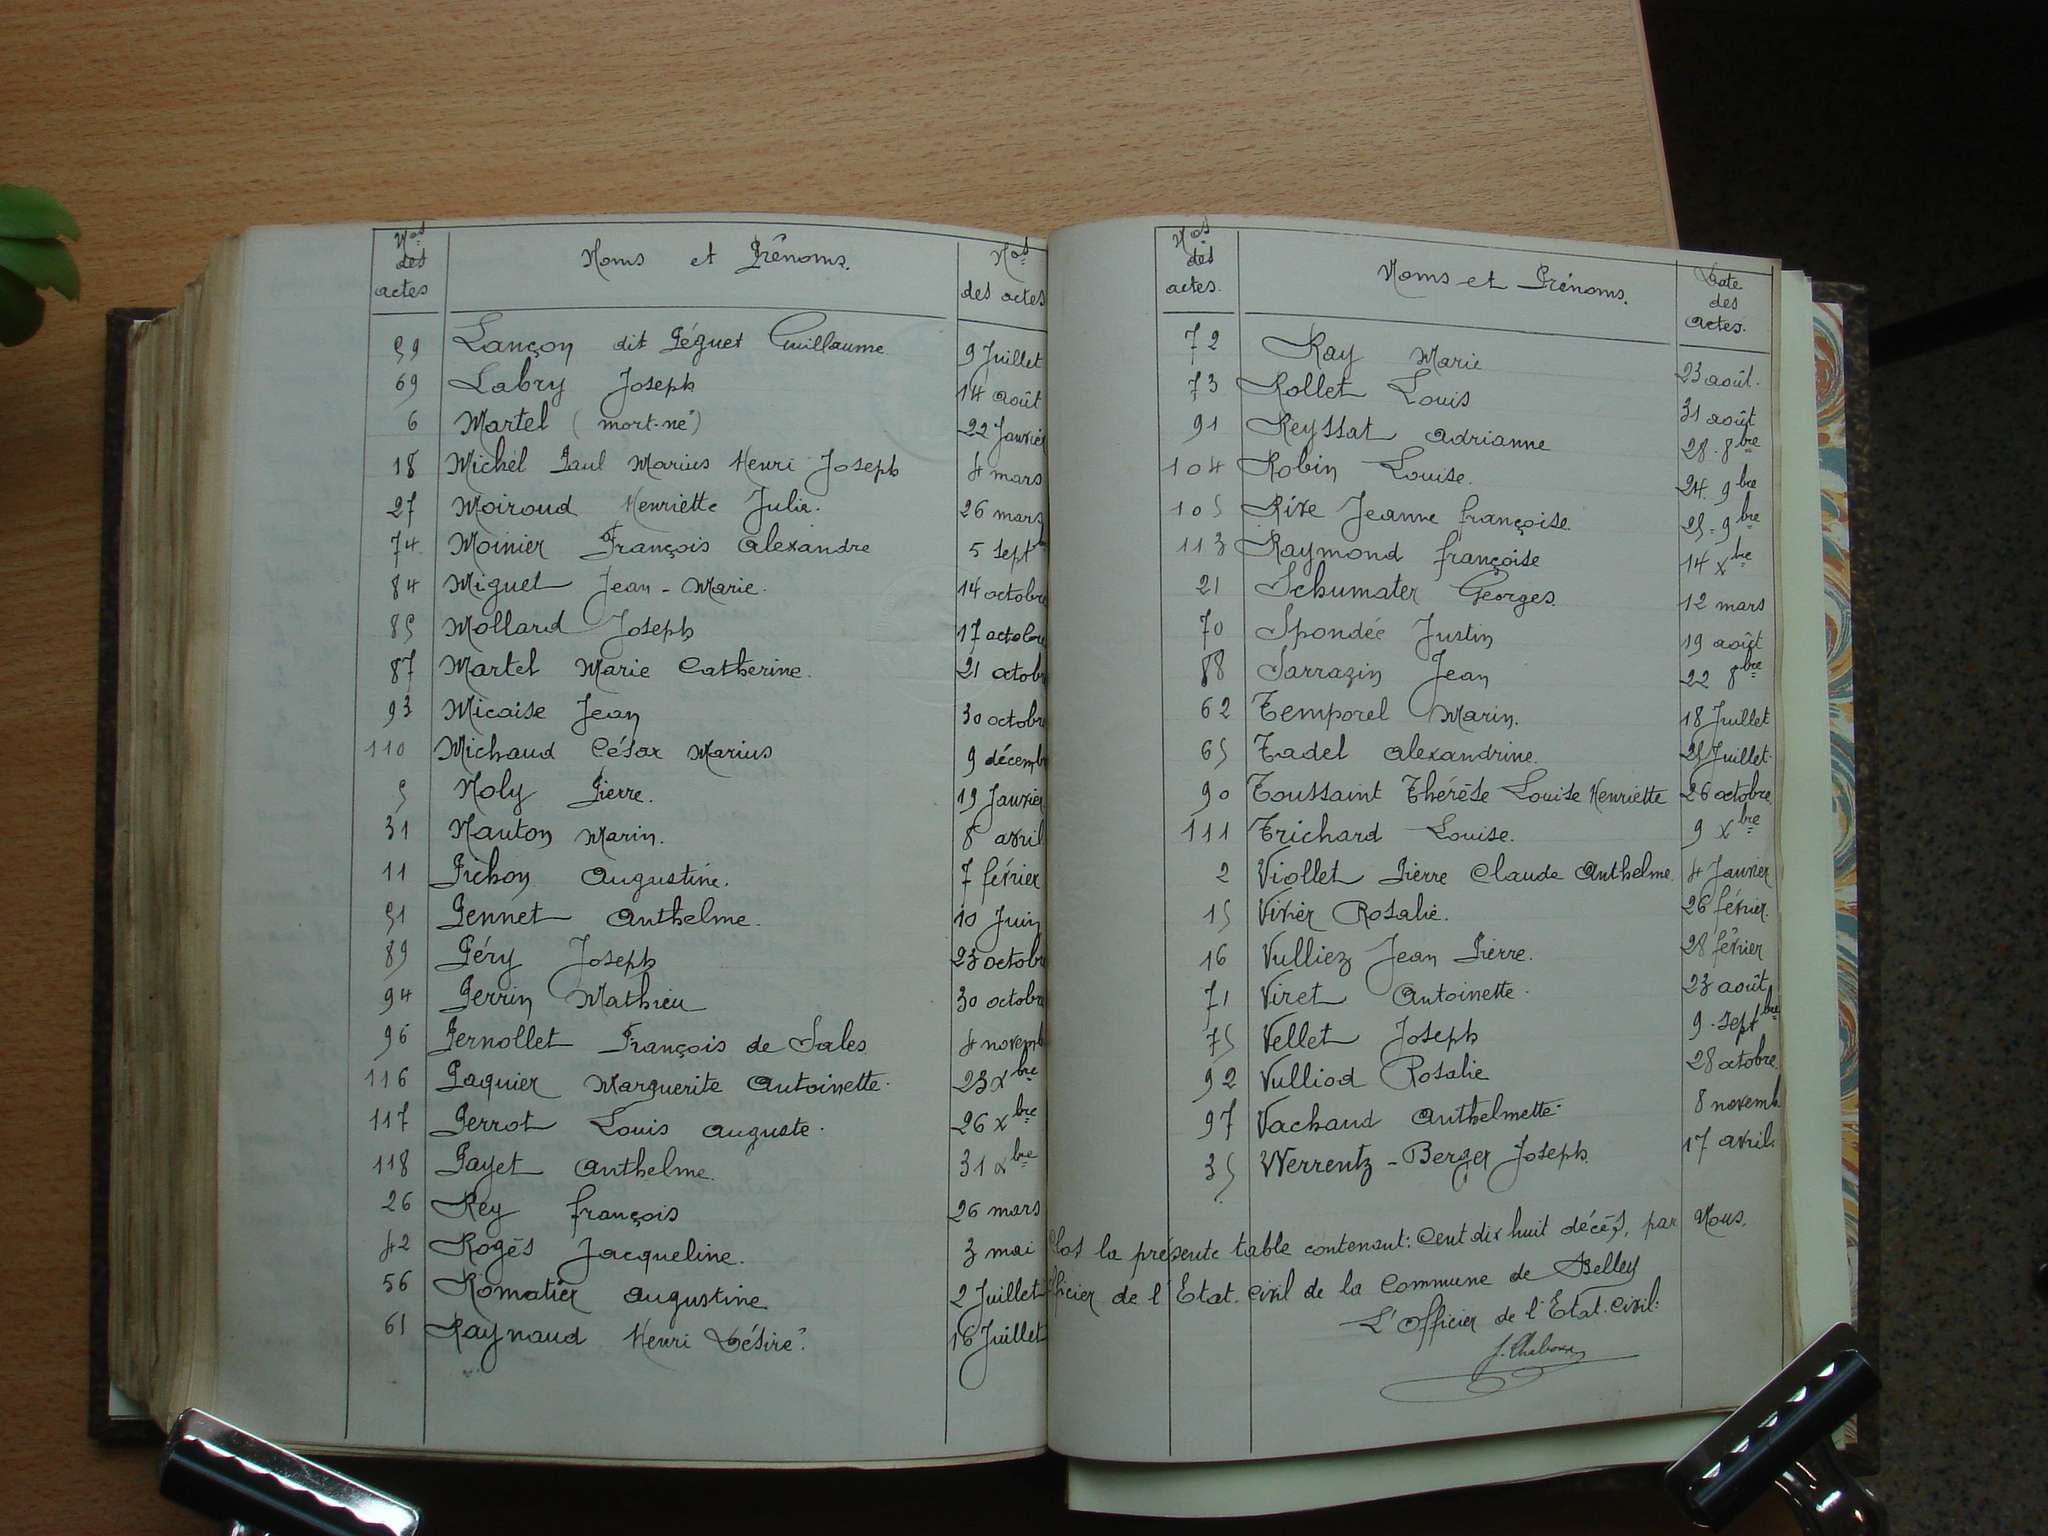 Nos des actes Noms et Prénoms. Nos des actes
59 Lançon dit Péguet Guillaume 9 Juillet
69 Labry Joseph 14 août
6 Martel (mort-né) 22 Janvier
18 Michel Paul Marius Henri Joseph 4 mars
27 Moiroud Henriette Julie. 26 mars
74 Moinier François Alexandre 5 septbre
84 Miguet Jean-Marie. 14 octobre
85 Mollard Joseph 17 octobre
87 Martel Marie Catherine. 21 octobre
93 Micaise Jean 30 octobre
110 Michaud César Marius 9 décemb
5 Noly Pierre. 19 Janvier
31 Nauton Marin. 8 avril
11 Pichon Augustine. 7 février
51 Pennet Anthelme. 10 Juin
89 Péry Joseph 23 octobre
94 Perrin Mathieu 30 octobre
96 Pernollet François de Sales 4 novemb
116 Paquier Marguerite Antoinette. 23 xbre
117 Perrot Louis Auguste. 26 xbre
118 Payet Anthelme. 31 xbre
26 Rey François 26 mars
42 Rogès Jacqueline. 3 mai
56 Romatier Augustine 2 Juillet
61 Raynaud Henri Désiré. 16 Juillet
Nos des actes. Noms et Prénoms. Date des actes.
72 Ray Marie 23 août.
73 Rollet Louis 31 août
91 Reyssat Adrianne 28. 8bre
104 Robin Louise. 24. 9bre
105 Rive Jeanne Françoise. 25. 9bre
113 Raymond Françoise 14 xbre
21 Schumater Georges. 12 mars
70 Spondée Justin 19 août
88 Sarrazin Jean 22 8bre
62 Temporel Marin. 18 Juillet
65 Tadel Alexandrine. 25 Juillet.
90 Toussaint Thérèse Louise Henriette 26 octobre.
111 Trichard Louise. 9 xbre
2 Viollet Pierre Claude Anthelme. 4 Janvier
15 Vivier Rosalie. 26 février.
16 Vulliez Jean Pierre. 28 février
71 Viret Antoinette. 23 août
75 Vellet Joseph 9. septbre
92 Vulliod Rosalie 28 octobre.
97 Vachaud Anthelmette. 8 novemb.
35 Werrentz-Berger Joseph. 17 avril.
Clos la présente table contenant: Cent dix huit décès, par Nous,
officier de l'Etat. civil de la Commune de Belley
L'Officier de l'Etat. civil: